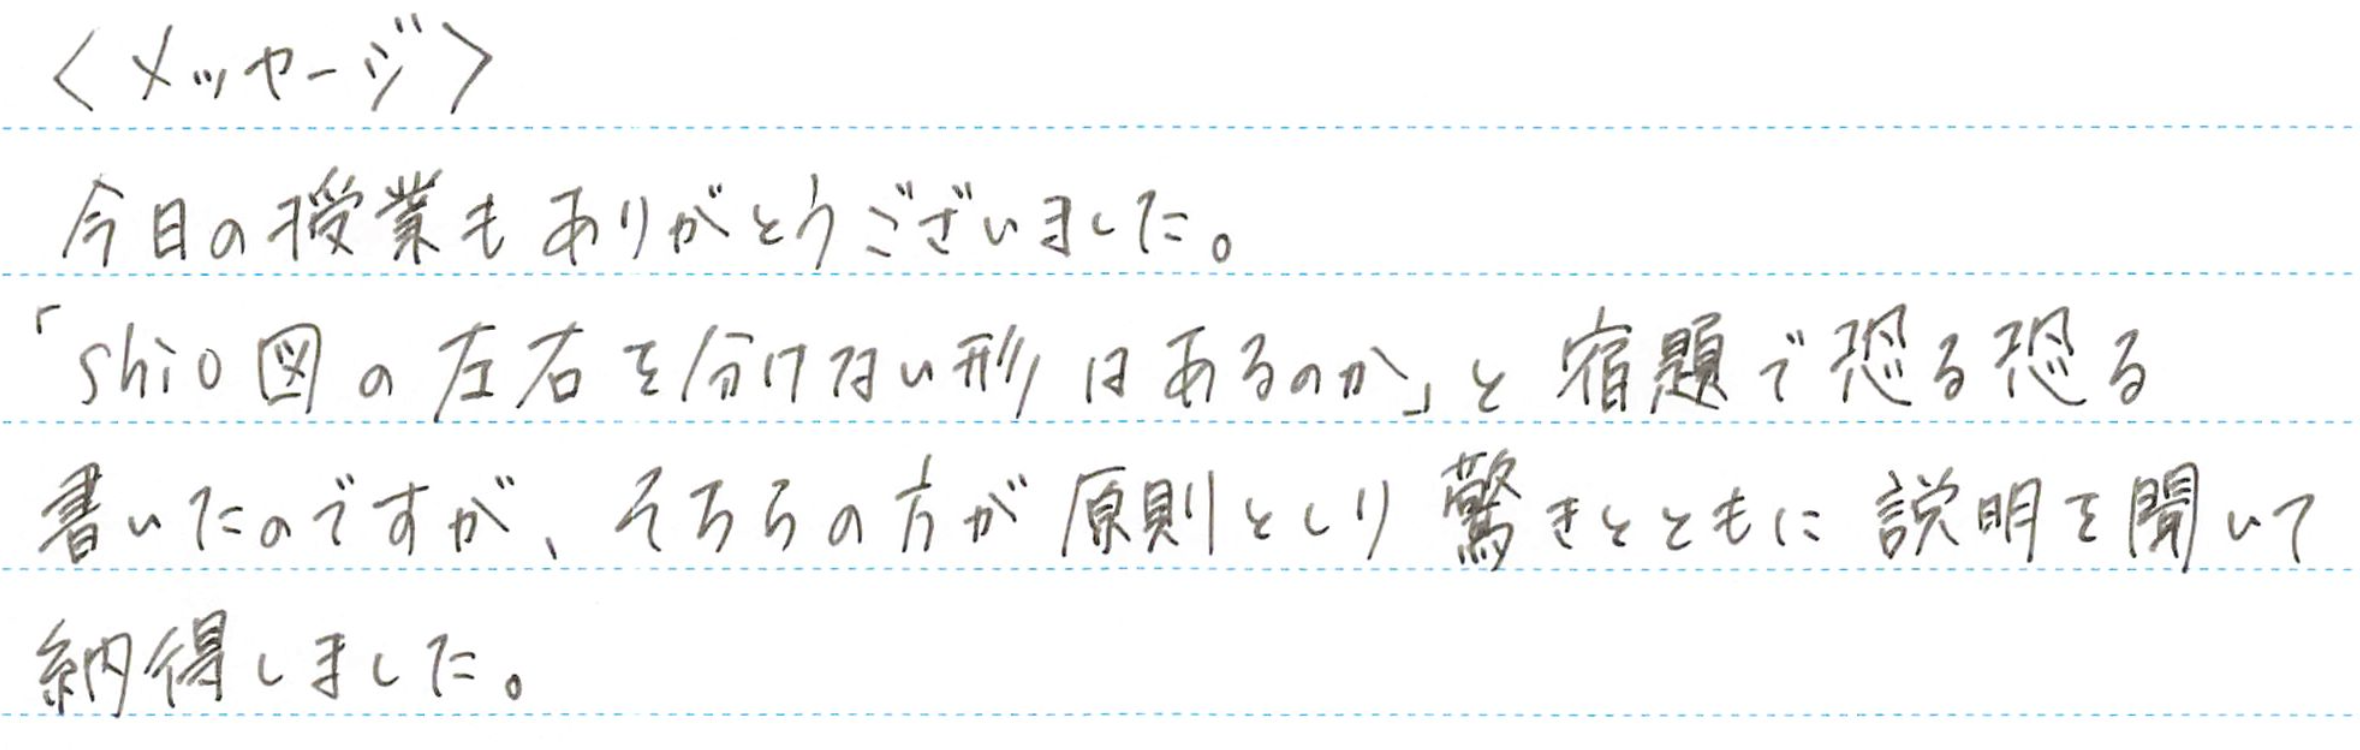 〈メッセージ〉
今日の授業もありがとうございました。
「shio図の左右を分けない形はあるのか」と宿題で恐る恐る
書いたのですが、そちらの方が原則としり驚きとともに説明を聞いて
納得しました。